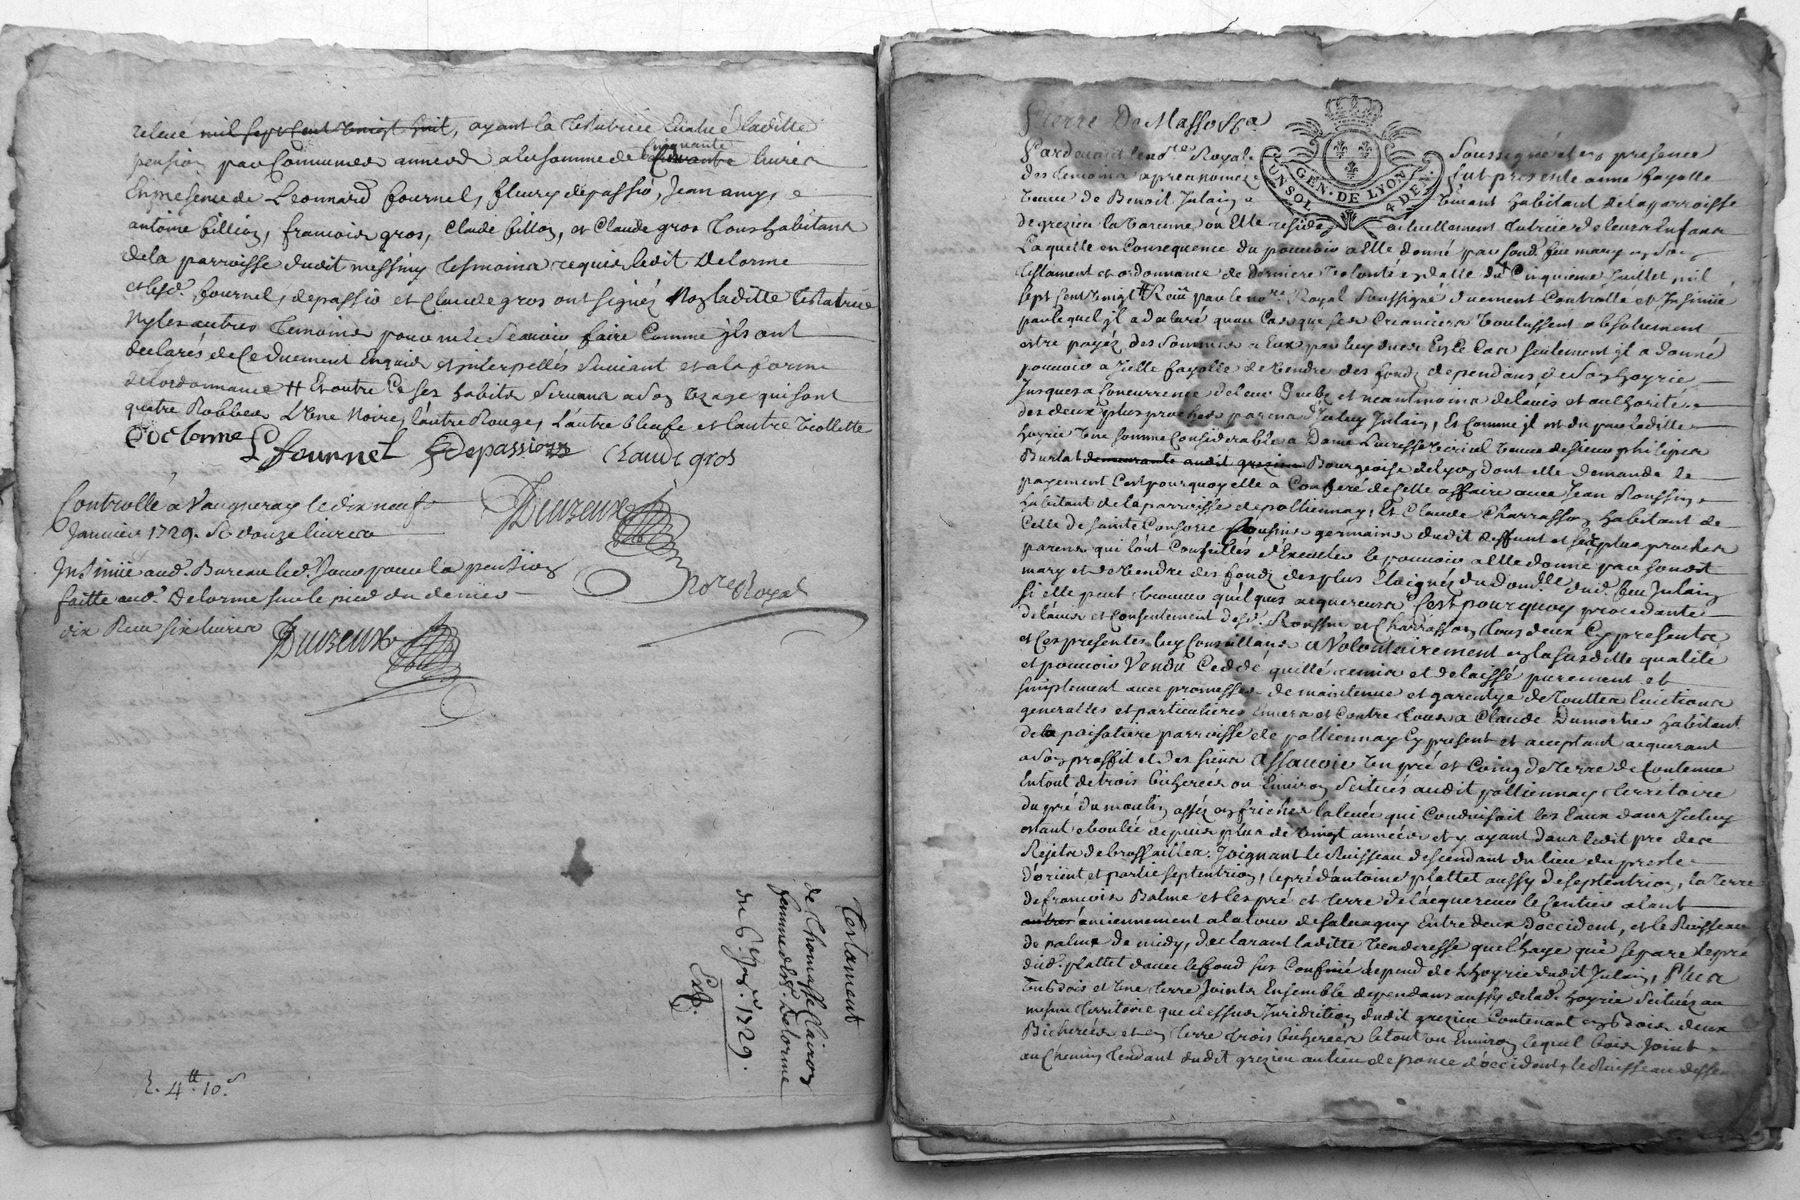 releué mil sept cent vingt huit, ayant la testatrice Eualué laditte
pension par Communes années a la somme de cinquante livres
En presence de Leonnard fournel, fleury depassio, Jean amy,
antoine billion, francois gros, Claude billon, et Claude gros Tous habitans
de la parroisse dudit messimy Tesmoins requis ledit Delorme
et lesd. fournel, depassio et Claude gros ont signés Non laditte testatrice
Ny les autres Temoins pour ne le scauoir faire Comme ils ont
declarés de ce duement Enquis et interpellés suiuant et a la forme
de lordonnance # Et outre ce ses habits seruans a son usage qui sont
quatre Robbes L'Une Noire, l'autre Rouge, L'autre bleufe et l'autre viollette
Delorme L fournel Depassio claude gros
Controllé a Vaugneray le dix neuf
Janvier 1729. R douze liures
Duureux
Insinué aud. Bureau led. Jour pour la pension
faitte aud. Delorme sur le pied du denier
Nore Royal
dix Receu six liures
Duureux
Testament
de Thomasse Clairon
femme d'Est. Delorme
du 6. 1729.
Exp.
R. 4tt 10s
Pierre De Masso
GEN. DE LYON
4 DE.
Pardeuant le no.re Royal soussigné et en presence
des temoins apres nommez fut presente anne fayolle
veuue de Benoit Julain viuant habitant de la parroisse
de grezieu la Varenne ou Elle reside actuellement tutrice de leurs Enfans
Laquelle en Consequence du pouuoir a Elle donné par sond. feu mary en son
Testament et ordonnance de derniere volonté en datte du Cinquieme Juillet mil
sept cent vingt par le no.re Royal soussigné duement Controllé et Insinué
par lequel il a declaré qu'au Cas que ses Creanciers voulussent absolument
estre payez des sommes a Eux par luy dues En ce Cas seulement il a donné
pouuoir a Jcelle fayolle de vendre des fonds dependans de son hoyrie
Jusques a Concurrence de leur et neantmoins de l'auis et authorité
des deux plus proches parens d'Jceluy Julain, Et Comme il est du par laditte
hoyrie une somme Considerable a Dame veuue de sieur philipes
Burlat demeurante audit grezieu Bourgeoise de Lyon dont elle demande le
payement C'est pourquoy elle a Conferé de Cette affaire auec Jean Roussin
habitant de la parroisse de pollionnay, Et Claude Charrasson habitant de
Celle de Sainte Consorce Cousins germains dudit deffunt et ses plus proches
parens qui l'ont Conseillés d'Executer le pouuoir a Elle donné par sondit
mary et de vendre des fonds des plus Eloignez du dud. feu Julain
si elle peut trouuer quelques acquereurs C'est pourquoy procedante
de l'auis et Consentement desd. Roussin et Charrasson Tous deux Cy presents
et Ces presentes luy Conseillans a Volontairement en la susditte qualité
et pouuoir Vendu Ceddé quitté remis et delaissé purement et
simplement auec promesses de maintenue et garentye de touttes Euictions
generalles et particulieres Enuers et Contre tous a Claude Dumortier habitant
de la poisatiere parroisse de pollionnay Cy present et acceptant acquerant
a son proffit et des siens Assauoir Un pré et Coing de terre de Contenue
En tout de trois bicherées ou Enuiron scitués audit pollionnay territoire
du pré du moulin assés en friches la leuée qui Conduisait les Eaux dans Jceluy
estant eboulée depuis plus de vingt années et y ayant dans ledit pré des
Rejets de brossailles. Joignant le Ruisseau descendant du lieu du presle
d'orient et partie septentrion, le pré d'antoine plattet aussy de septentrion, la terre
de francois Balme et les pré et terre de l'acquereur le sentier alant
anciennement a la tour de saluagny Entre deux d'occident, et le Ruisseau
de palus de midy, Declarant laditte Venderesse que l'haye que separe le pré
dud. plattet d'auec le fond sus Confiné depend de l'hoyrie dudit Julain, Plus
un bois et une terre Joints Ensemble dependans aussy de lad. hoyrie scitués au
mesme territoire que dessus Jurisdiction dudit grezieu Contenant en bois deux
Bicherées et en terre trois bicherées le tout ou Enuiron lequel bois Joint
au Chemin tendant dudit grezieu au lieu de ponce d'occident, le Ruisseau